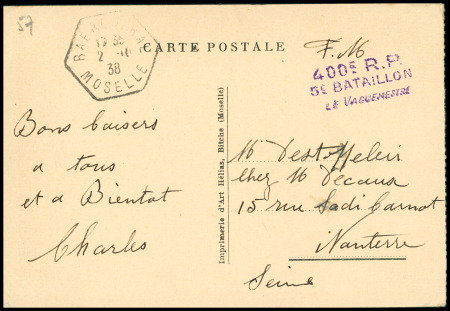 57
BAER
MOSELLE
38
CARTE POSTALE
F.M
400E R.P.
5E BATAILLON
LE VAGUEMESTRE
Bons baisers
a tous
et a Bientot
Charles
Imprimerie d'Art Hélias, Bitche (Moselle)
chez M Decaux
15 rue Sadi Carnot
Nanterre
Seine